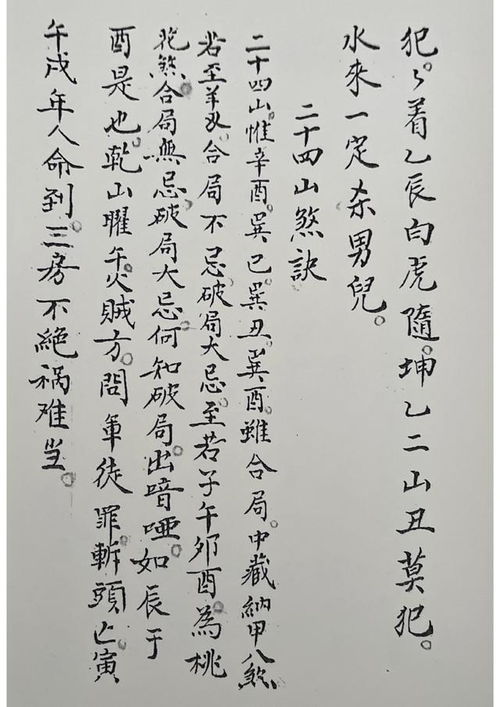 犯〻着乙辰白虎隨。坤乙二山丑莫犯。
水來一定杀男兒。
二十四山煞訣
二十四山惟辛酉。巽巳。巽丑。巽酉。雖合局。中藏納甲八煞
若至羊刃。合局不忌。破局大忌。至若子午夘酉。為桃
花煞合局無忌。破局大忌。何知破局出喑啞。如辰于
酉是也。乾山曜午火賊方。問軍徒罪斬頭亡。寅
午戌年人命到。三房不絕禍难当。